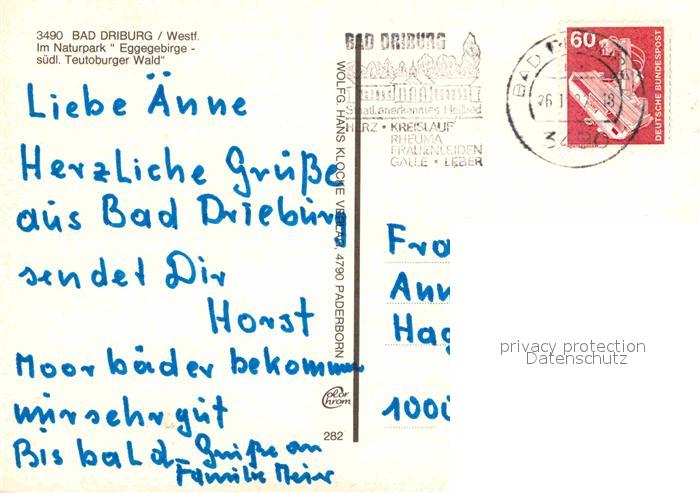 3490 BAD DRIBURG / Westf.
Im Naturpark " Eggegebirge -
südl. Teutoburger Wald"
Liebe Änne
Herzliche Grüße
aus Bad Drieburg
sendet Dir
Horst
Moorbäder bekommen
mir sehr gut
Bis bald
Grüße an
Familie Meier
WOLFG. HANS KLOCKE VERLAG, 4790 PADERBORN
Color
chrom
282
BAD DRIBURG
Staatl. anerkanntes Heilbad
HERZ • KREISLAUF
RHEUMA
FRAUENLEIDEN
GALLE • LEBER
BAD
3490
60
DEUTSCHE BUNDESPOST
Fra
Ann
Hag
100
privacy protection
Datenschutz